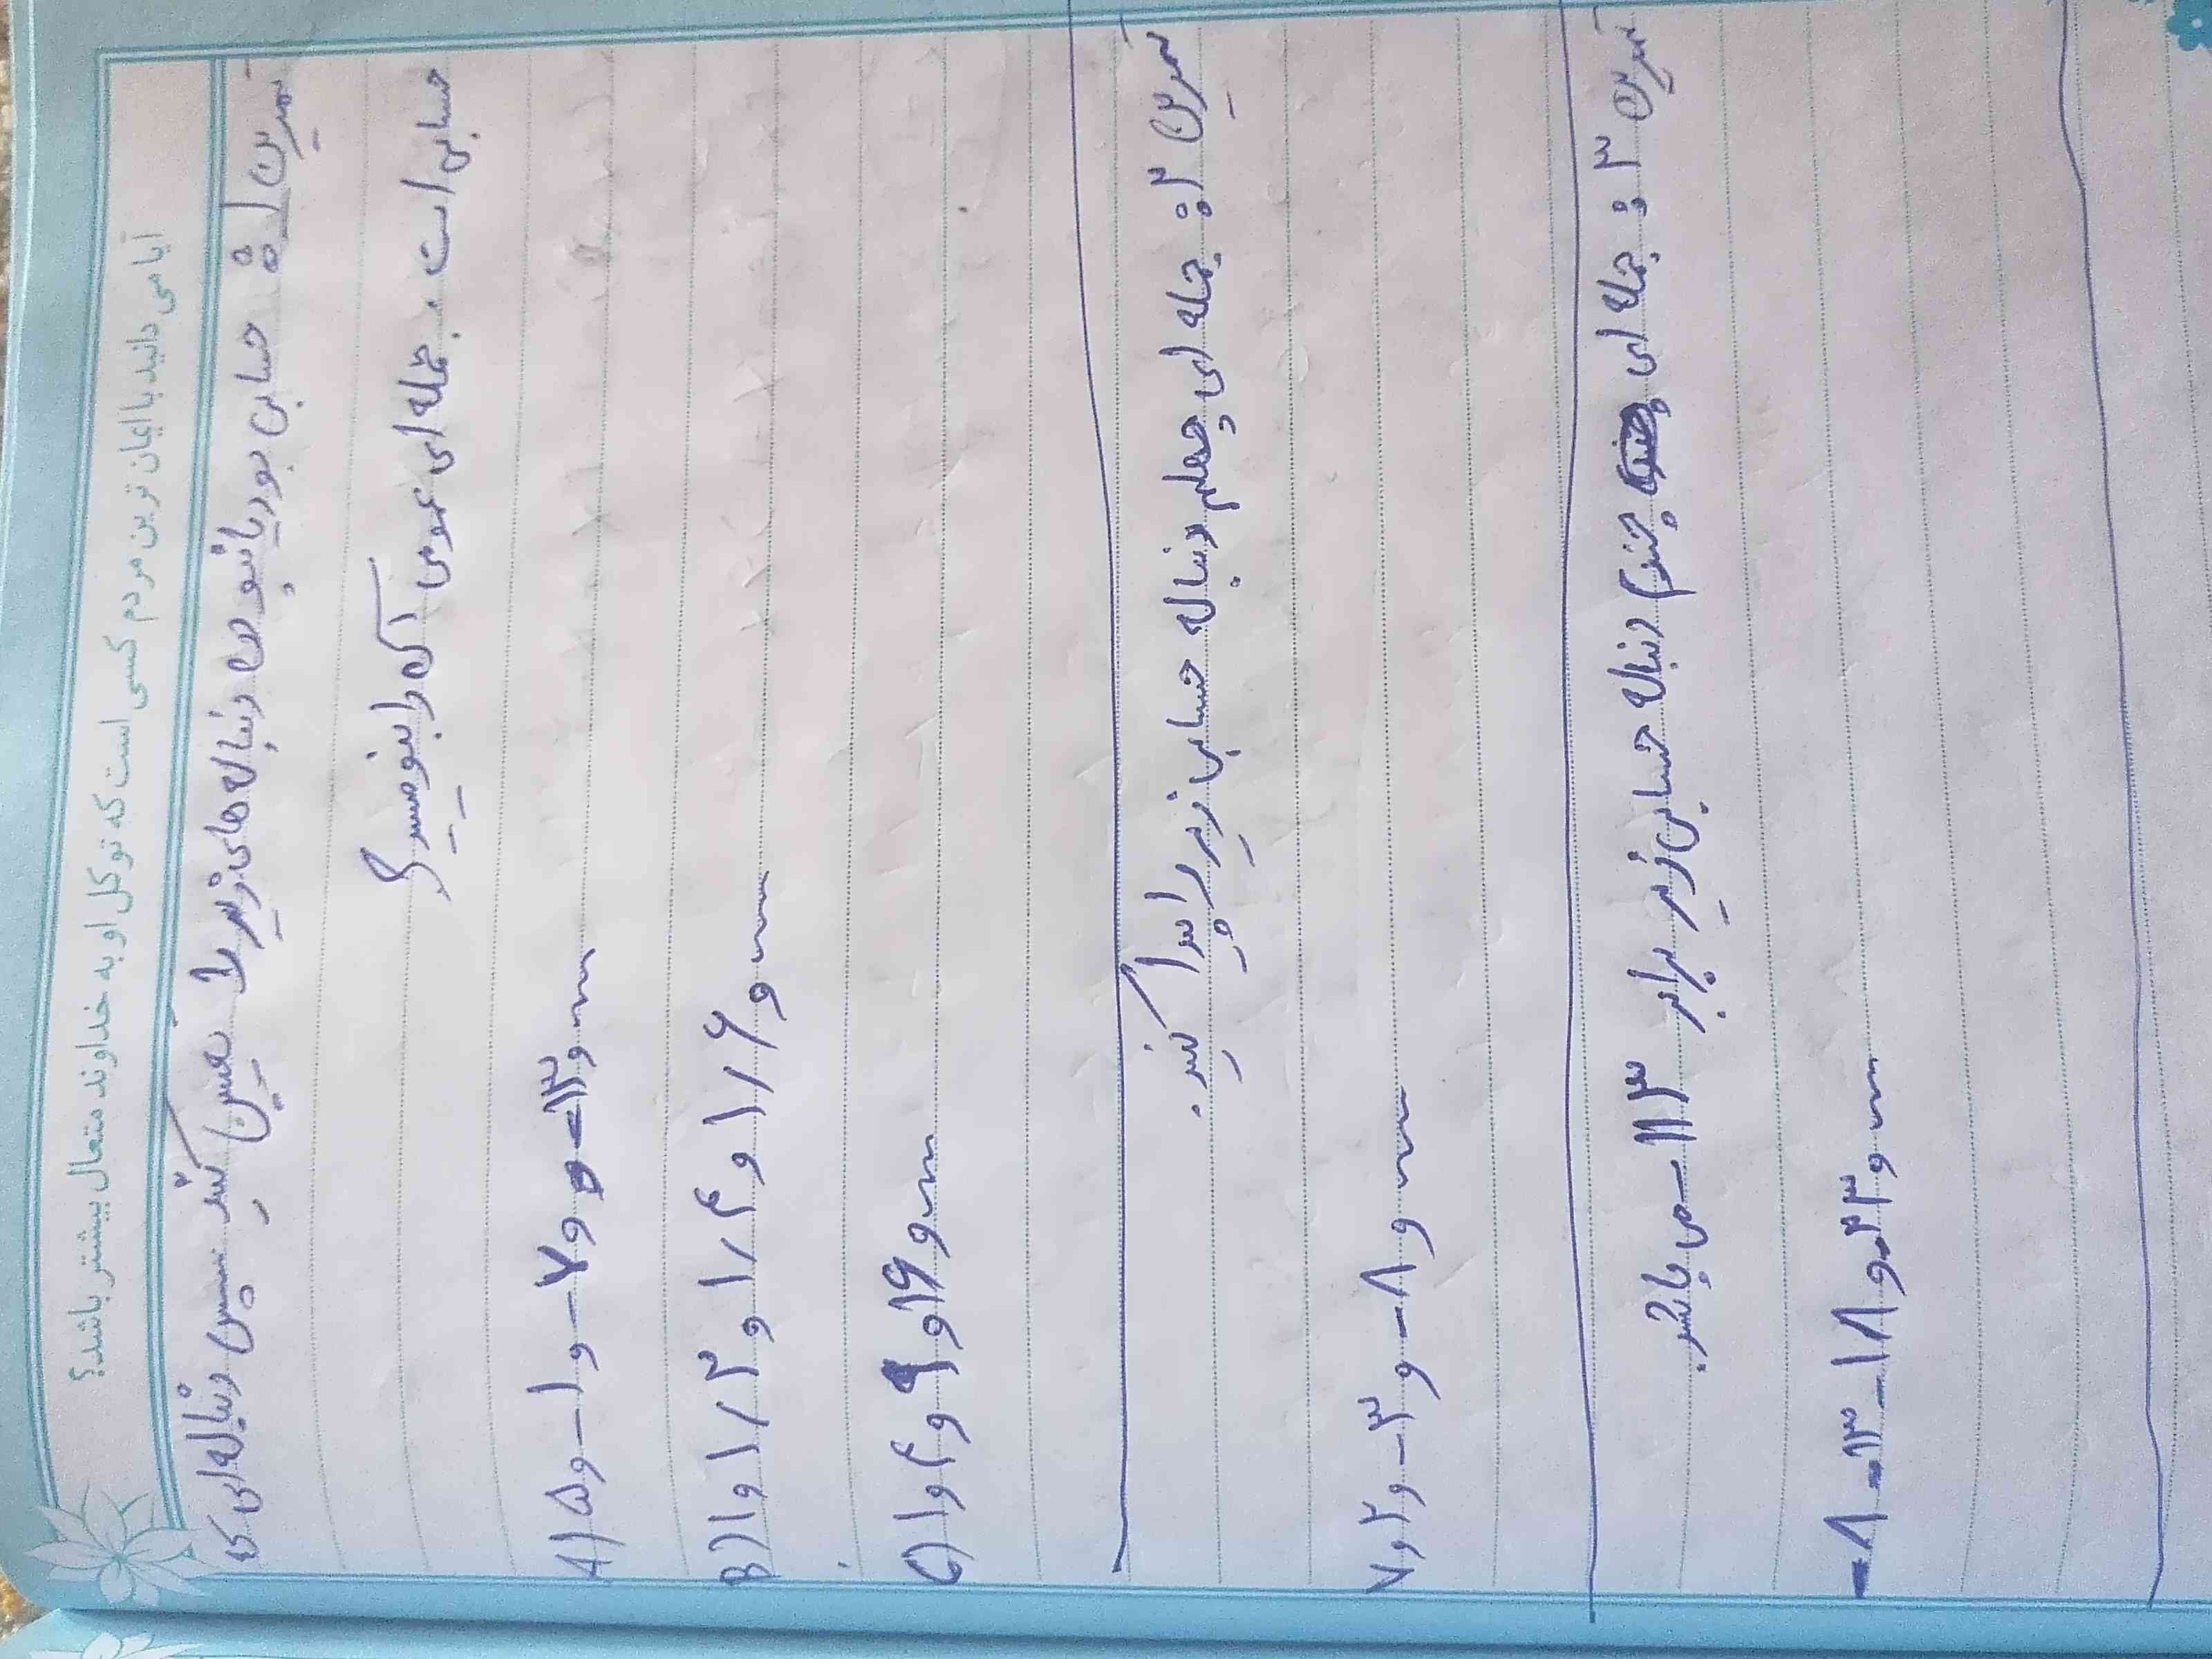 آیا می دانید با ایمان ترین مردم کسی است که توکل او به خداوند متعال بیشتر باشد؟
تمرین ۱: حسابی بود یا نبودن دنباله های زیر را تعیین کنید سپس دنباله ای که
حسابی است، جمله ای عمومی آن را بنویسید؟
A) ۵ و -۱ و -۷ و -۱۳ و ...
B) ۱ و ۱/۲ و ۱/۴ و ۱/۶ و ...
C) ۱ و ۴ و ۹ و ۱۶ و ...
تمرین ۲: جمله ای چهلم دنباله حسابی زیر را پیدا کنید.
۷ و ۲ و -۳ و -۸ و ...
تمرین ۳: جمله ای چندم دنباله حسابی زیر برابر -۱۱۳ می باشد.
-۸ -۱۳ -۱۸ و -۲۳ و ...